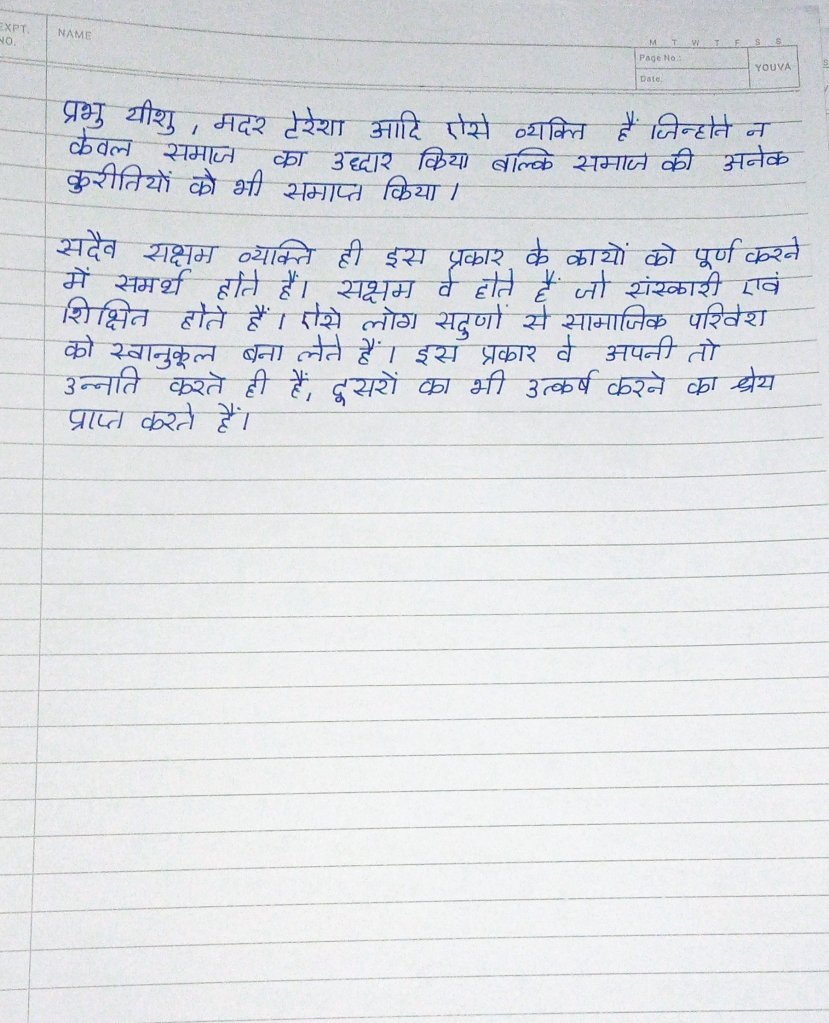 EXPT. NO.
NAME
M T W T F S S
Page No.:
YOUVA
Date:
प्रभु यीशु, मदर टेरेसा आदि ऐसे व्यक्ति हैं जिन्होंने न
केवल समाज का उद्धार किया बल्कि समाज की अनेक
कुरीतियों को भी समाप्त किया।
सदैव सक्षम व्यक्ति ही इस प्रकार के कार्यो को पूर्ण करने
में समर्थ होते हैं। सक्षम वे होते हैं जो संस्कारी एवं
शिक्षित होते हैं। ऐसे लोग सद्गुणों से सामाजिक परिवेश
को स्वानुकूल बना लेते हैं। इस प्रकार वे अपनी तो
उन्नति करते ही हैं, दूसरों का भी उत्कर्ष करने का श्रेय
प्राप्त करते हैं।